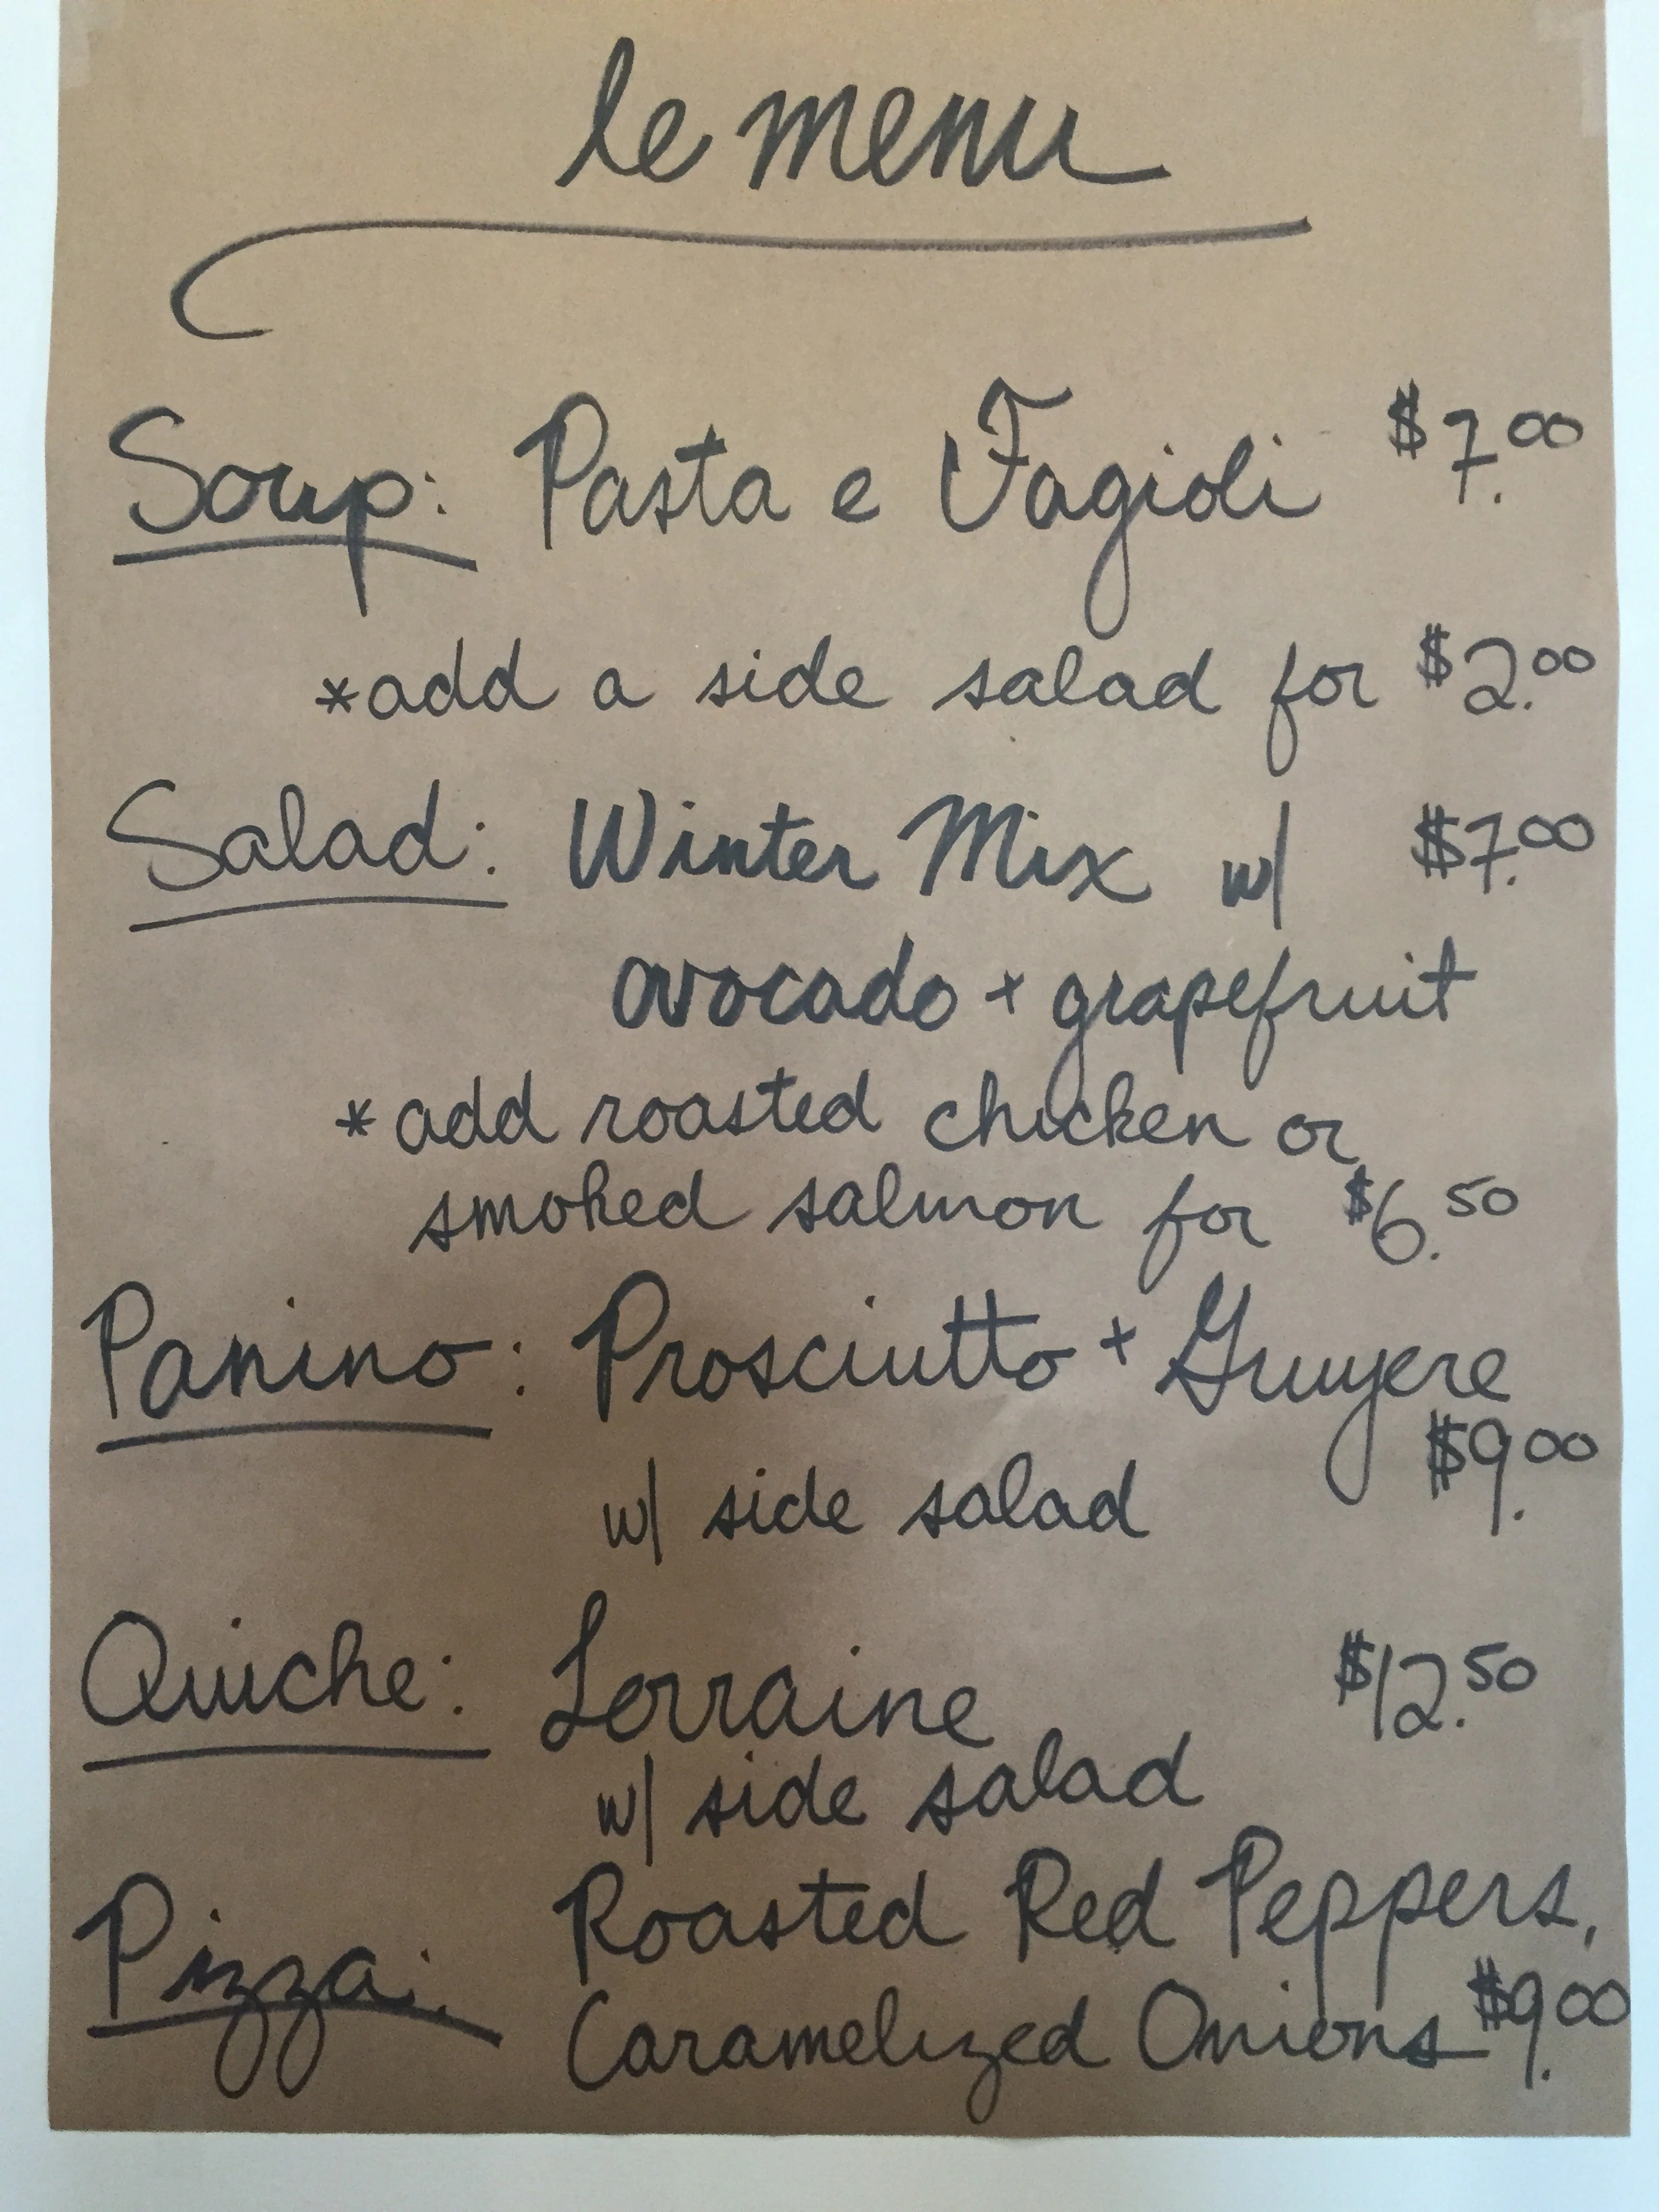 le menu
Soup: Pasta e Fagioli $7.00
*add a side salad for $2.00
Salad: Winter Mix w/ $7.00
avocado + grapefruit
*add roasted chicken or
smoked salmon for $6.50
Panino: Prosciutto + Gruyere
$9.00
w/ side salad
Quiche: Lorraine $12.50
w/ side salad
Pizza: Roasted Red Peppers,
Caramelized Onions $9.00